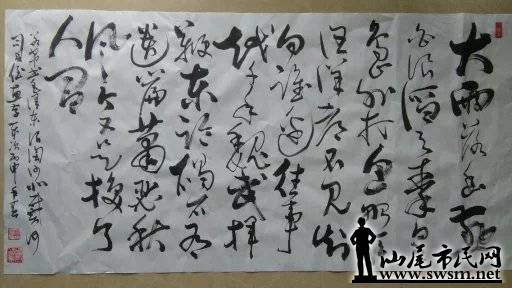 大雨落幽燕
白浪滔天秦皇
岛外打鱼船一片
汪洋都不见知
向谁边往事
越千年魏武挥
鞭东临碣石有
遗篇萧瑟秋
风今又是换了
人间
毛泽东浪淘沙北戴河
汕尾市民网
www.swsm.net